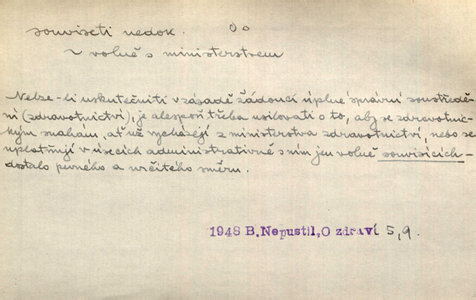 souviseti nedok. Oo
~ volně s ministerstvem
Nelze-li uskutečniti v zásadě žádoucí úplné správní soustředě-
ní (zdravotnictví), je alespoň třeba usilovati o to, aby se zdravotnic-
kým snahám, ať už vycházejí z ministerstva zdravotnictví, nebo se
uplatňují v úsecích administrativně s ním jen volně souvisících-
dostalo pevného a určitého směru.
1948 B.Nepustil,O zdraví 5,9.